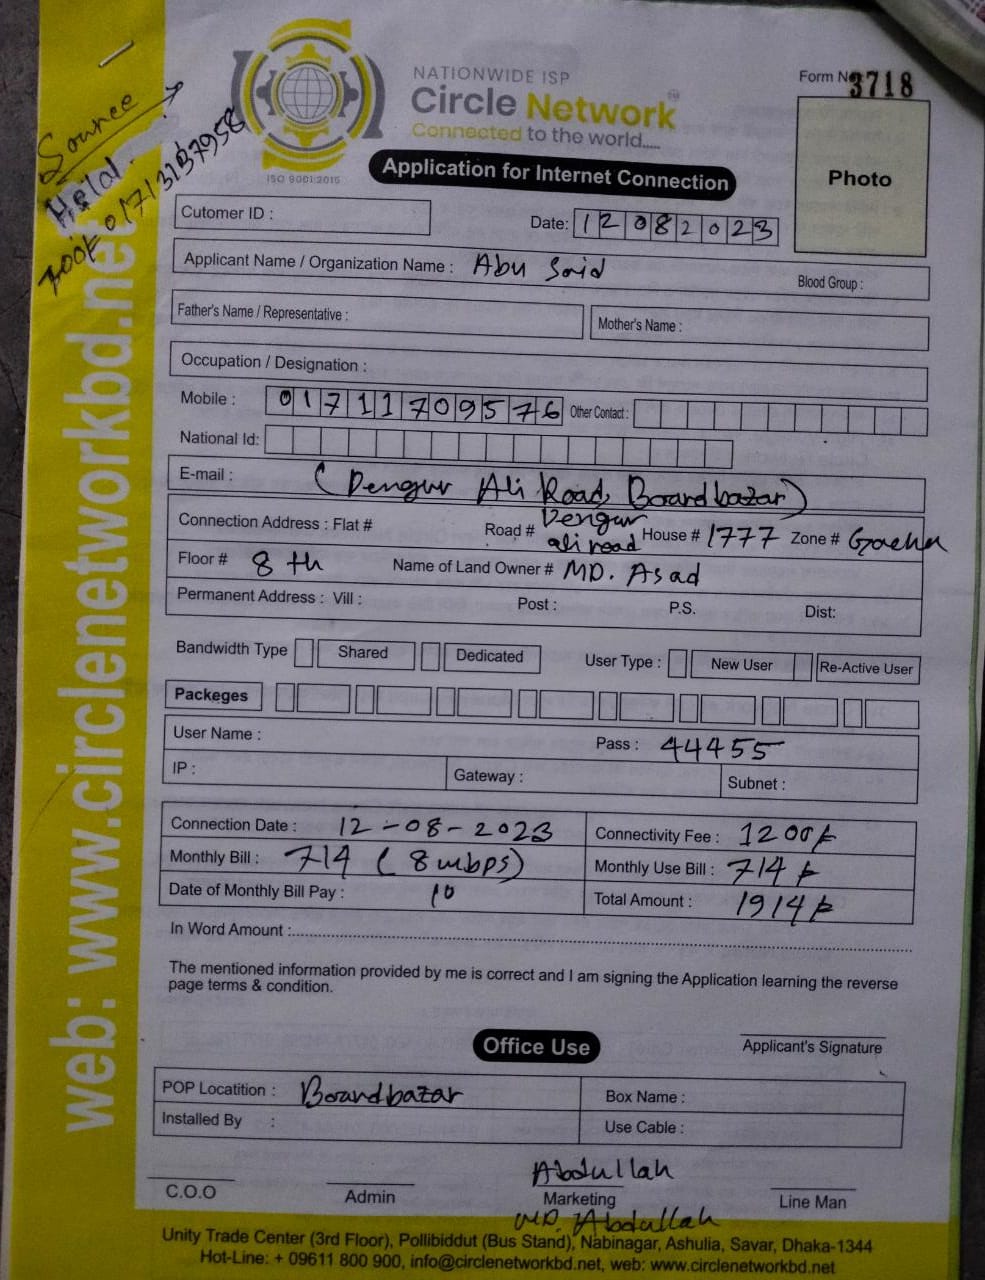 Source
Helal
Book 01713137958
NATIONWIDE ISP
Circle Network
Connected to the world.....
ISO 9001:2015
Form No 3718
Application for Internet Connection
Photo
Cutomer ID :
Date: 12082023
Applicant Name / Organization Name : Abu Said
Blood Group :
Father's Name / Representative :
Mother's Name :
Occupation / Designation :
Mobile : 01711709576 Other Contact :
National Id:
E-mail : (Dengur Ali Road, Boardbazar)
Connection Address : Flat # Road # Dengur ali road House # 1777 Zone # Gacha
Floor # 8 th Name of Land Owner # MD. Asad
Permanent Address : Vill : Post : P.S. Dist:
Bandwidth Type Shared Dedicated User Type : New User Re-Active User
Packeges
User Name : Pass : 44455
IP : Gateway : Subnet :
Connection Date : 12-08-2023 Connectivity Fee : 1200/-
Monthly Bill : 714 (8 mbps) Monthly Use Bill : 714/-
Date of Monthly Bill Pay : 10 Total Amount : 1914/-
In Word Amount :
The mentioned information provided by me is correct and I am signing the Application learning the reverse
page terms & condition.
Applicant's Signature
Office Use
POP Locatition : Boardbazar Box Name :
Installed By : Use Cable :
Abdullah
C.O.O Admin Marketing Line Man
MD. Abdullah
Unity Trade Center (3rd Floor), Pollibiddut (Bus Stand), Nabinagar, Ashulia, Savar, Dhaka-1344
Hot-Line: + 09611 800 900, info@circlenetworkbd.net, web: www.circlenetworkbd.net
web: www.circlenetworkbd.net